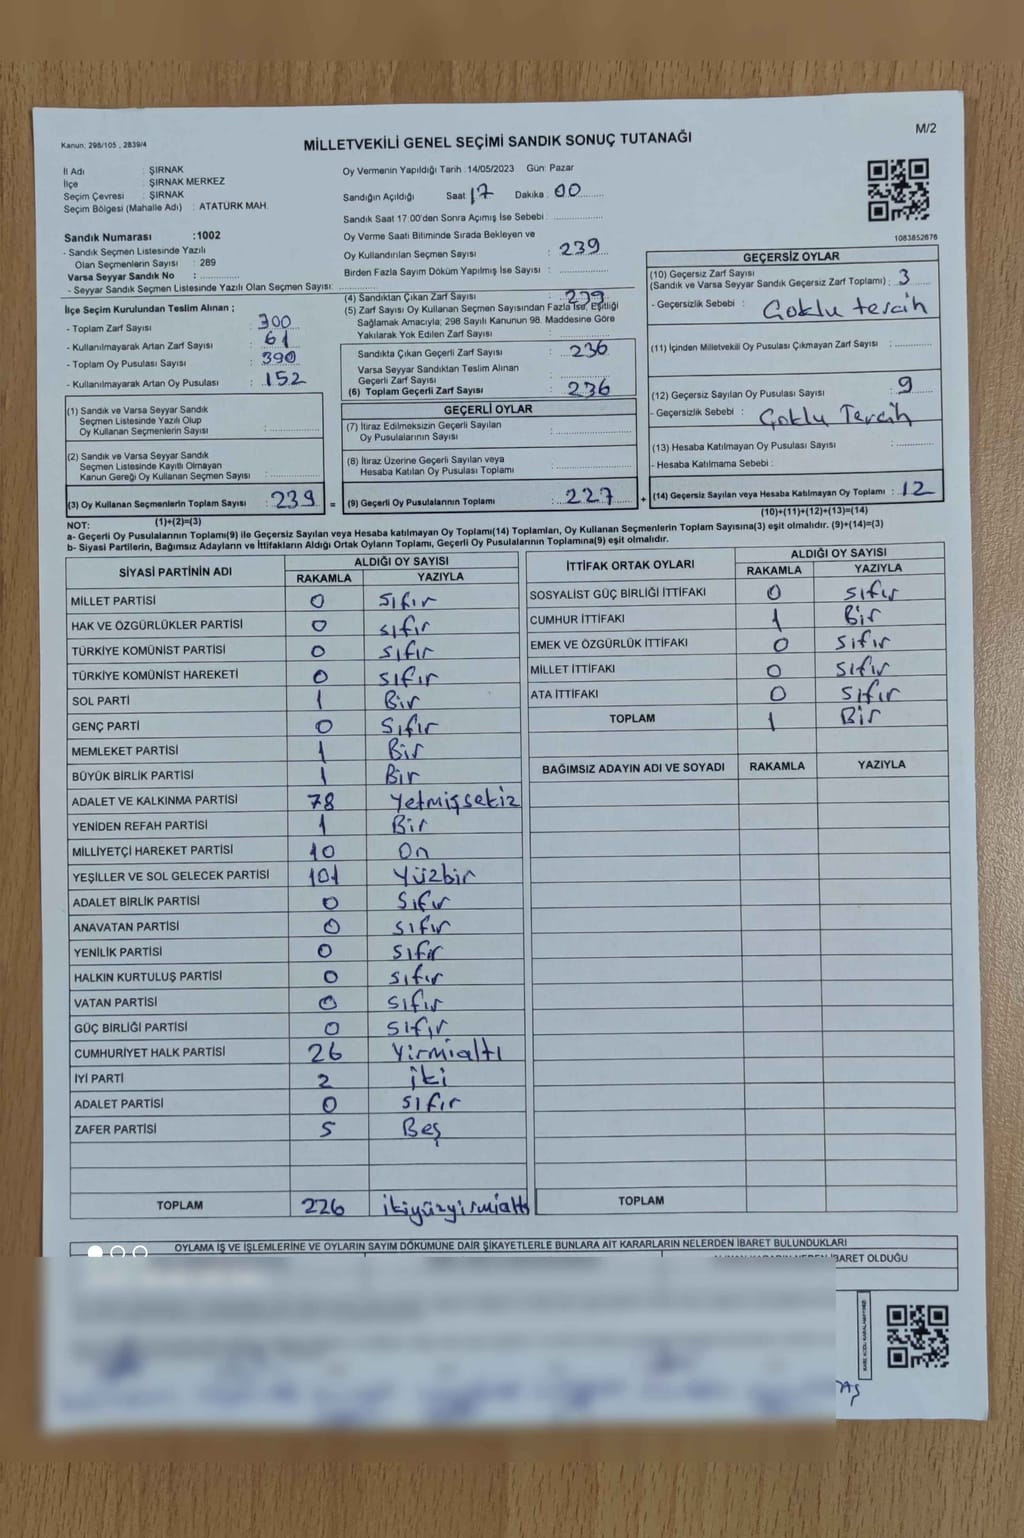 Kanun; 298/105 , 2839/4
MİLLETVEKİLİ GENEL SEÇİMİ SANDIK SONUÇ TUTANAĞI
M/2
İl Adı : ŞIRNAK
İlçe : ŞIRNAK MERKEZ
Seçim Çevresi : ŞIRNAK
Seçim Bölgesi (Mahalle Adı) : ATATÜRK MAH.
Sandık Numarası :1002
- Sandık Seçmen Listesinde Yazılı
Olan Seçmenlerin Sayısı : 289
Varsa Seyyar Sandık No :
- Seyyar Sandık Seçmen Listesinde Yazılı Olan Seçmen Sayısı:
Oy Vermenin Yapıldığı Tarih : 14/05/2023 Gün: Pazar
Sandığın Açıldığı Saat 17 Dakika : 00
Sandık Saat 17:00'den Sonra Açımış İse Sebebi :
Oy Verme Saati Bitiminde Sırada Bekleyen ve
Oy Kullandırılan Seçmen Sayısı : 239
Birden Fazla Sayım Döküm Yapılmış İse Sayısı :
1083852676
İlçe Seçim Kurulundan Teslim Alınan ;
- Toplam Zarf Sayısı : 300
- Kullanılmayarak Artan Zarf Sayısı : 61
- Toplam Oy Pusulası Sayısı : 390
- Kullanılmayarak Artan Oy Pusulası : 152
(1) Sandık ve Varsa Seyyar Sandık
Seçmen Listesinde Yazılı Olup
Oy Kullanan Seçmenlerin Sayısı :
(2) Sandık ve Varsa Seyyar Sandık
Seçmen Listesinde Kayıtlı Olmayan
Kanun Gereği Oy Kullanan Seçmen Sayısı :
(3) Oy Kullanan Seçmenlerin Toplam Sayısı : 239 =
(1)+(2)=(3)
(4) Sandıktan Çıkan Zarf Sayısı : 239
(5) Zarf Sayısı Oy Kullanan Seçmen Sayısından Fazla İse, Eşitliği
Sağlamak Amacıyla; 298 Sayılı Kanunun 98. Maddesine Göre
Yakılarak Yok Edilen Zarf Sayısı :
Sandıkta Çıkan Geçerli Zarf Sayısı : 236
Varsa Seyyar Sandıktan Teslim Alınan
Geçerli Zarf Sayısı :
(6) Toplam Geçerli Zarf Sayısı : 236
GEÇERLİ OYLAR
(7) İtiraz Edilmeksizin Geçerli Sayılan
Oy Pusulalarının Sayısı :
(8) İtiraz Üzerine Geçerli Sayılan veya
Hesaba Katılan Oy Pusulası Toplamı :
(9) Geçerli Oy Pusulalarının Toplamı : 227 +
GEÇERSİZ OYLAR
(10) Geçersiz Zarf Sayısı
(Sandık ve Varsa Seyyar Sandık Geçersiz Zarf Toplamı) : 3
- Geçersizlik Sebebi : Çoklu tercih
(11) İçinden Milletvekili Oy Pusulası Çıkmayan Zarf Sayısı :
(12) Geçersiz Sayılan Oy Pusulası Sayısı : 9
- Geçersizlik Sebebi : Çoklu Tercih
(13) Hesaba Katılmayan Oy Pusulası Sayısı :
- Hesaba Katılmama Sebebi :
(14) Geçersiz Sayılan veya Hesaba Katılmayan Oy Toplamı : 12
(10)+(11)+(12)+(13)=(14)
NOT:
a- Geçerli Oy Pusulalarının Toplamı(9) ile Geçersiz Sayılan veya Hesaba katılmayan Oy Toplamı(14) Toplamları, Oy Kullanan Seçmenlerin Toplam Sayısına(3) eşit olmalıdır. (9)+(14)=(3)
b- Siyasi Partilerin, Bağımsız Adayların ve İttifakların Aldığı Ortak Oyların Toplamı, Geçerli Oy Pusulalarının Toplamına(9) eşit olmalıdır.
SİYASİ PARTİNİN ADI ALDIĞI OY SAYISI
RAKAMLA YAZIYLA
MİLLET PARTİSİ 0 Sıfır
HAK VE ÖZGÜRLÜKLER PARTİSİ 0 sıfır
TÜRKİYE KOMÜNİST PARTİSİ 0 Sıfır
TÜRKİYE KOMÜNİST HAREKETİ 0 Sıfır
SOL PARTİ 1 Bir
GENÇ PARTİ 0 Sıfır
MEMLEKET PARTİSİ 1 Bir
BÜYÜK BİRLİK PARTİSİ 1 Bir
ADALET VE KALKINMA PARTİSİ 78 Yetmişsekiz
YENİDEN REFAH PARTİSİ 1 Bir
MİLLİYETÇİ HAREKET PARTİSİ 10 On
YEŞİLLER VE SOL GELECEK PARTİSİ 101 Yüzbir
ADALET BİRLİK PARTİSİ 0 Sıfır
ANAVATAN PARTİSİ 0 sıfır
YENİLİK PARTİSİ 0 sıfır
HALKIN KURTULUŞ PARTİSİ 0 sıfır
VATAN PARTİSİ 0 sıfır
GÜÇ BİRLİĞİ PARTİSİ 0 sıfır
CUMHURİYET HALK PARTİSİ 26 Yirmialtı
İYİ PARTİ 2 İki
ADALET PARTİSİ 0 sıfır
ZAFER PARTİSİ 5 Beş
TOPLAM 226 ikiyüzyirmialtı
İTTİFAK ORTAK OYLARI ALDIĞI OY SAYISI
RAKAMLA YAZIYLA
SOSYALİST GÜÇ BİRLİĞİ İTTİFAKI 0 sıfır
CUMHUR İTTİFAKI 1 Bir
EMEK VE ÖZGÜRLÜK İTTİFAKI 0 sıfır
MİLLET İTTİFAKI 0 sıfır
ATA İTTİFAKI 0 sıfır
TOPLAM 1 Bir
BAĞIMSIZ ADAYIN ADI VE SOYADI RAKAMLA YAZIYLA
TOPLAM
OYLAMA İŞ VE İŞLEMLERİNE VE OYLARIN SAYIM DÖKÜMÜNE DAİR ŞİKAYETLERLE BUNLARA AİT KARARLARIN NELERDEN İBARET BULUNDUKLARI
İBARET OLDUĞU